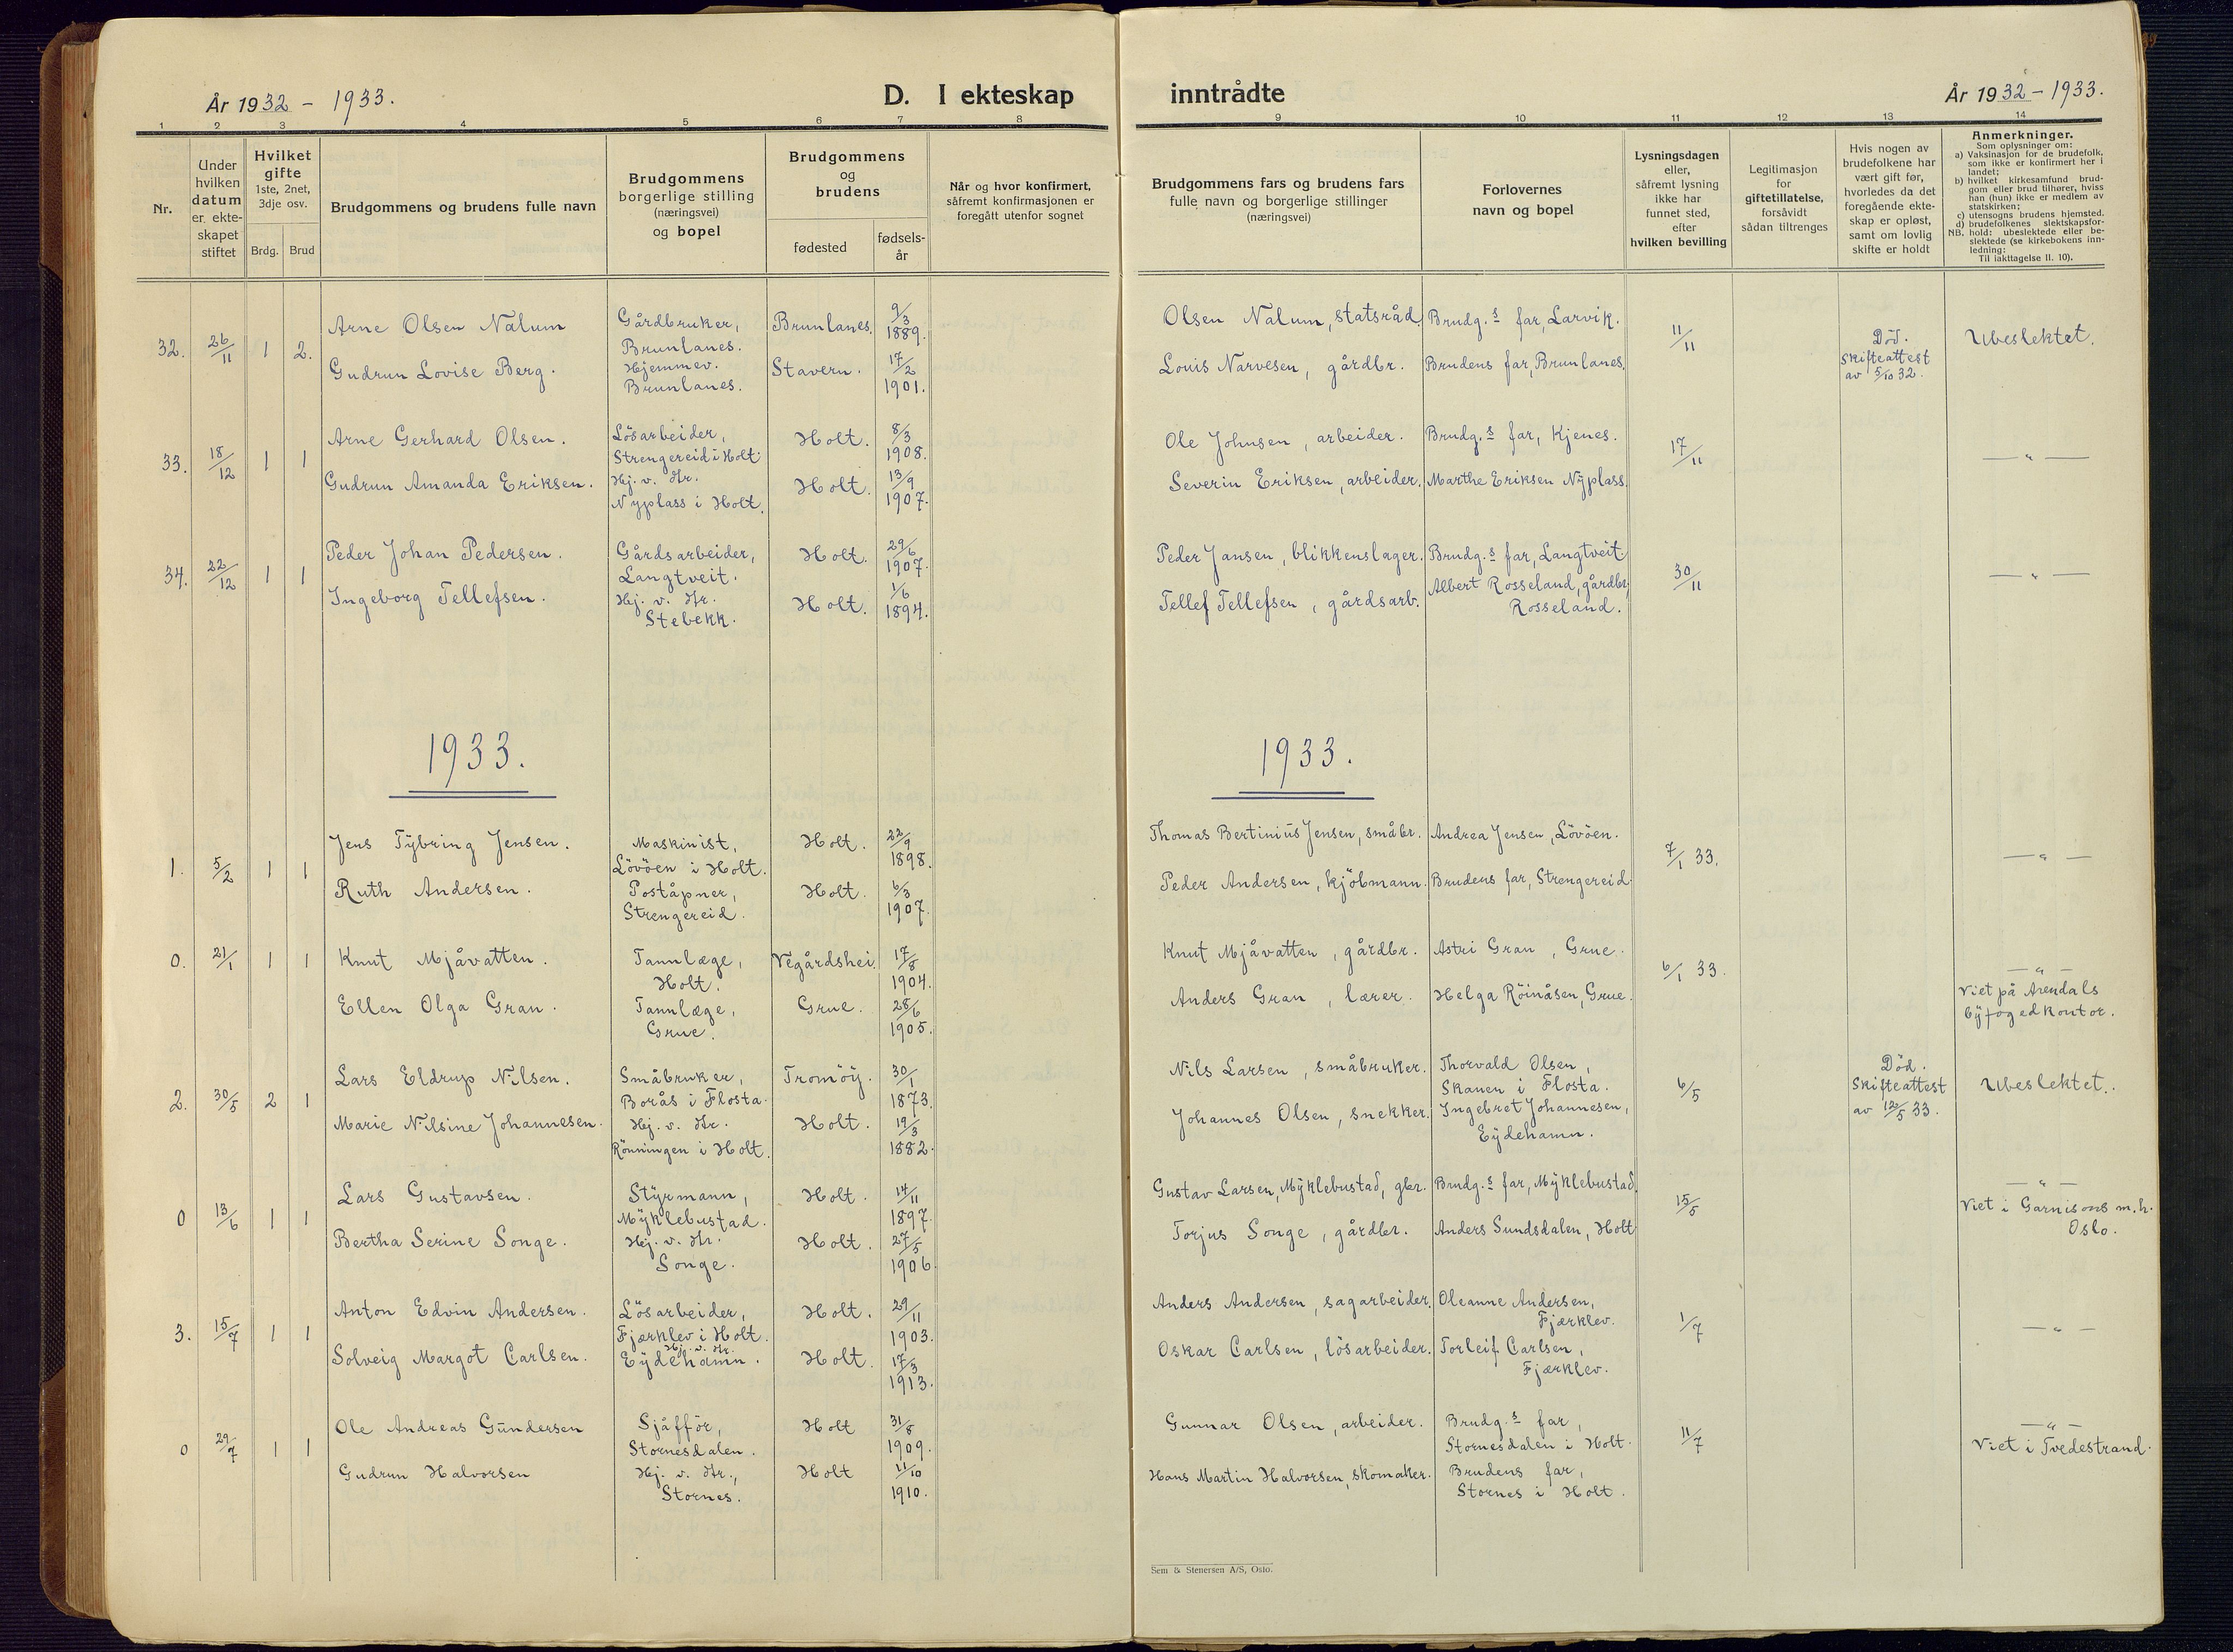 År 1932 - 1933.
D. I ekteskap
inntrådte
År 1932 - 1933.
1 2 3 4 5 6 7 8 9 10 11 12 13 14
Nr.
Under
hvilken
datum
er ekte-
skapet
stiftet
Hvilket
gifte
1ste, 2net,
3dje osv.
Brdg. Brud
Brudgommens og brudens fulle navn
Brudgommens
borgerlige stilling
(næringsvei)
og bopel
Brudgommens
og
brudens
fødested
fødsels-
år
Når og hvor konfirmert,
såfremt konfirmasjonen er
foregått utenfor sognet
Brudgommens fars og brudens fars
fulle navn og borgerlige stillinger
(næringsvei)
Forlovernes
navn og bopel
Lysningsdagen
eller,
såfremt lysning
ikke har
funnet sted,
efter
hvilken bevilling
Legitimasjon
for
giftetillatelse,
forsåvidt
sådan tiltrenges
Hvis nogen av
brudefolkene har
vært gift før,
hvorledes da det
foregående ekte-
skap er opløst,
samt om lovlig
skifte er holdt
Anmerkninger.
Som oplysninger om:
a) Vaksinasjon for de brudefolk,
som ikke er konfirmert her i
landet;
b) hvilket kirkesamfund brud-
gom eller brud tilhører, hviss
han (hun) ikke er medlem av
statskirken;
c) utensogns brudens hjemsted.
d) brudefolkenes slektskapsfor-
NB. hold: ubeslektede eller be-
slektede (se kirkebokens inn-
ledning:
Til iakttagelse II. 10).
32. 26/11 1 2.
Arne Olsen Nalum
Gårdbruker,
Brunlanes.
Brunlanes.
9/3
1889.
Olsen Nalum, statsråd.
Brudg.s far, Larvik.
11/11
Død.
Skifteattest
av 5/10 32.
Ubeslektet.
Gudrun Lovise Berg.
Hjemmev.
Brunlanes.
Stavern.
17/2
1901.
Louis Narvesen, gårdbr.
Brudens far, Brunlanes.
33. 18/12 1 1
Arne Gerhard Olsen.
Lösarbeider,
Strengereid i Holt.
Holt.
8/3
1908.
Ole Johnsen, arbeider.
Brudg.s far, Kjenes.
17/11
— " —
Gudrun Amanda Eriksen.
Hj. v. Hr.
Nyplass i Holt.
Holt.
13/9
1907.
Severin Eriksen, arbeider.
Marthe Eriksen Nyplass.
34. 22/12 1 1
Peder Johan Pedersen.
Gårdsarbeider,
Langtveit.
Holt.
29/6
1907.
Peder Jansen, blikkenslager.
Brudg.s far, Langtveit
30/11
— " —
Ingeborg Tellefsen.
Hj. v. Hr.
Stebekk.
Holt.
1/6
1894.
Tellef Tellefsen, gårdsarb.
Albert Rosseland, gårdbr,
Rosseland.
1933.
1933.
1. 5/2 1 1
Jens Tybring Jensen.
Maskinist,
Lövöen i Holt.
Holt.
22/9
1898.
Thomas Bertinius Jensen, småbr.
Andrea Jensen, Lövöen.
7/1 33.
— " —
Ruth Andersen.
Poståpner,
Strengereid.
Holt.
6/3
1907.
Peder Andersen, kjöbmann.
Brudens far, Strengereid.
0. 21/1 1 1
Knut Mjåvatten.
Tannlæge,
Holt.
Vegårdshei.
17/8
1904.
Knut Mjåvatten, gårdbr.
Astri Gran, Grue.
6/1 33.
— " —
Viet på Arendals
byfogedkontor.
Ellen Olga Gran.
Tannlæge,
Grue.
Grue.
28/6
1905.
Anders Gran, lærer.
Helga Röinåsen, Grue.
2. 30/5 2 1
Lars Eldrup Nilsen.
Småbruker,
Borås i Flosta.
Tromöy.
30/1
1873.
Nils Larsen, småbruker.
Thorvald Olsen,
Skanen i Flosta.
6/5
Død.
Skifteattest
av 12/5 33.
Ubeslektet.
Marie Nilsine Johannesen.
Hj. v. Hr.
Rönningen i Holt.
Holt.
19/3
1882.
Johannes Olsen, snekker.
Ingebret Johannesen,
Eydehamn.
0 13/6 1 1
Lars Gustavsen.
Styrmann,
Myklebustad.
Holt.
14/11
1897.
Gustav Larsen, Myklebustad, gbr.
Brudg.s far, Myklebustad.
15/5
— " —
Viet i Garnisons m.h.
Oslo.
Bertha Serine Songe.
Hj. v. Hr.
Songe.
Holt.
27/5
1906.
Torjus Songe, gårdbr.
Anders Sundsdalen, Holt
3. 15/7 1 1
Anton Edvin Andersen.
Lösarbeider,
Fjærklev i Holt.
Holt.
29/11
1903.
Anders Andersen, sagarbeider.
Oleanne Andersen,
Fjærklev.
1/7
— " —
Solveig Margot Carlsen.
Hj. v. Hr.
Eydehamn.
Holt.
17/3
1913.
Oskar Carlsen, lösarbeider.
Torleif Carlsen,
Fjærklev.
0 29/7 1 1
Ole Andreas Gundersen
Sjåfför,
Stornesdalen.
Holt
31/8
1909.
Gunnar Olsen, arbeider.
Brudg.s far,
Stornesdalen i Holt.
11/7
— " —
Viet i Tvedestrand.
Gudrun Halvorsen
Hj. v. Hr.,
Stornes.
Holt
11/10
1910.
Hans Martin Halvorsen, skomaker.
Brudens far,
Stornes i Holt.
Sem & Stenersen A/S, Oslo.